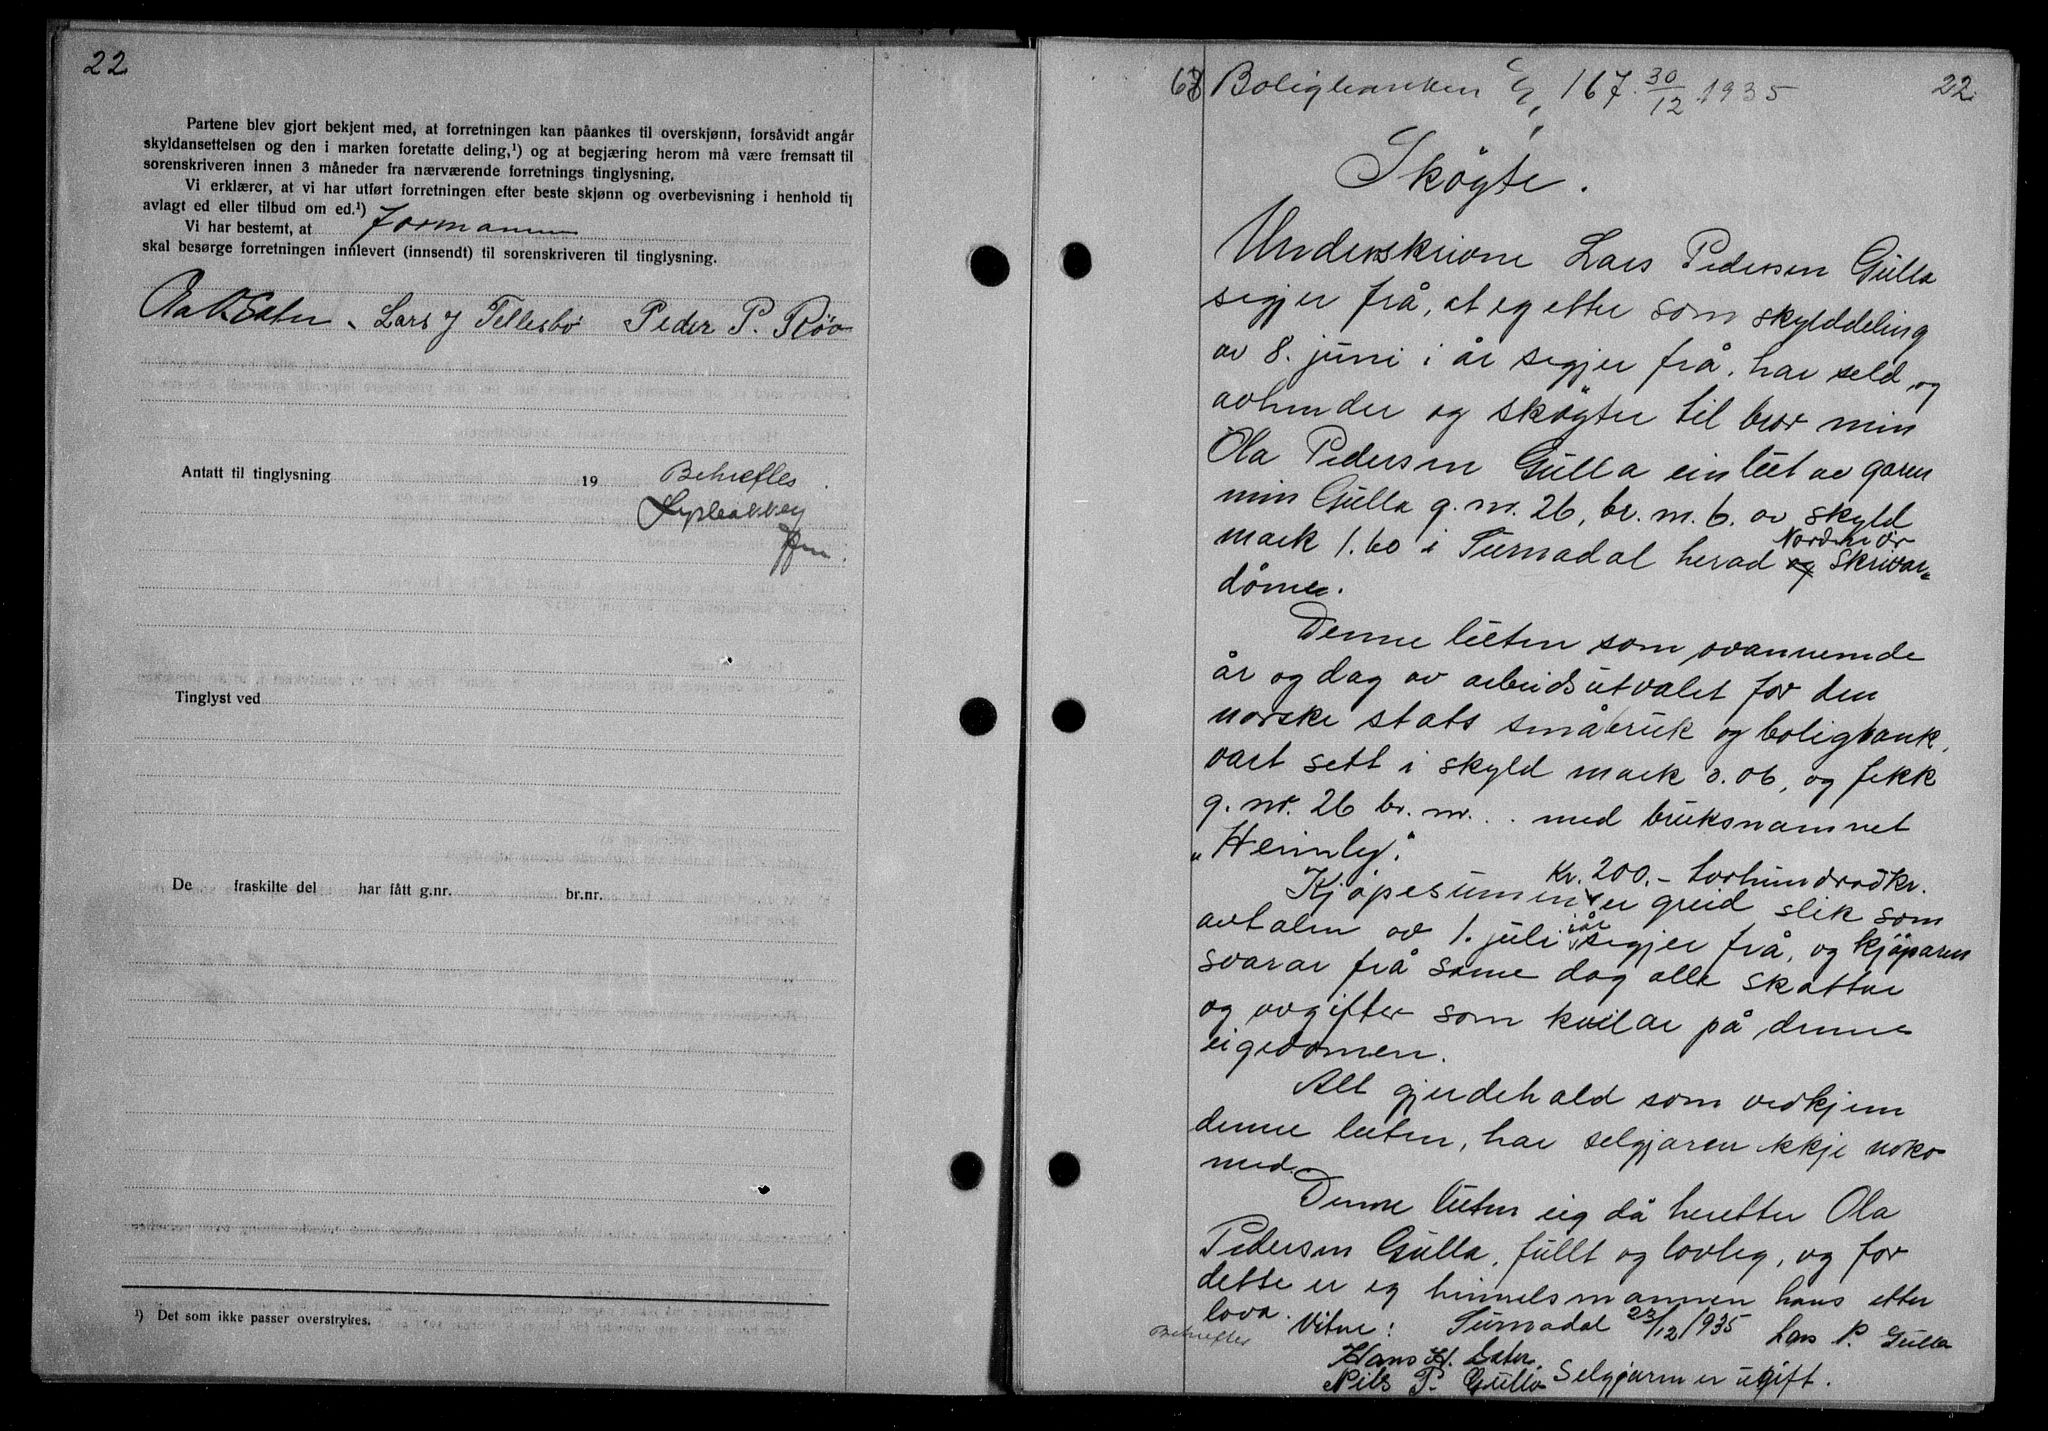 22
Partene blev gjort bekjent med, at forretningen kan påankes til overskjønn, forsåvidt angår
skyldansettelsen og den i marken foretatte deling,¹) og at begjæring herom må være fremsatt til
sorenskriveren innen 3 måneder fra nærværende forretnings tinglysning.
Vi erklærer, at vi har utført forretningen efter beste skjønn og overbevisning i henhold til
avlagt ed eller tilbud om ed.¹)
Vi har bestemt, at formannen
skal besørge forretningen innlevert (innsendt) til sorenskriveren til tinglysning.
Lars J Tellesbø Peder P. Røv
Antatt til tinglysning 19 Bekreftes
Tinglyst ved
De fraskilte del har fått g.nr. br.nr.
¹) Det som ikke passer overstrykes.
68 Boligbanken 167. 30/12 1935 22.
Skøgte.
Underskrivne Lars Pedersen Gulla
segjer frå, at eg etter som skylddeling
av 8. juni i år segjer frå, har seld og
avhender og skøgter til bror min
Ola Pedersen Gulla ein lut av garen
min Gulla g. nr. 26, br. nr. 6. av skyld
mark 1.60 i Surnadal herad og Nordmør Skrivar=
døme.
Denne luten som ovannemde
år og dag av arbeidsutvalet for den
norske stats småbruk og boligbank,
vart sett i skyld mark 0.06, og fekk
g. nr. 26 br. nr. .. med bruksnamnet
„Heimly".
Kr. 200.- tvohundradkr.
Kjøpesumen er greid slik som
avtalen av 1. juli iår segjer frå, og kjøparen
svarar frå same dag alle skattar
og avgifter som kvilar på denne
eigedomen.
Alt gjerdehald som vedkjem
denne luten, har seljaren ikkje noko
med.
Denne luten eig då heretter Ola
Pedersen Gulla, fullt og lovleg, og for
dette er eg heimelsmannen hans etter
lova. Vitne: Surnadal 23/12 1935 Lars P. Gulla
Bekreftes
Hans H. Sæter. Selgjaren er ugift.
Nils P. Gulla